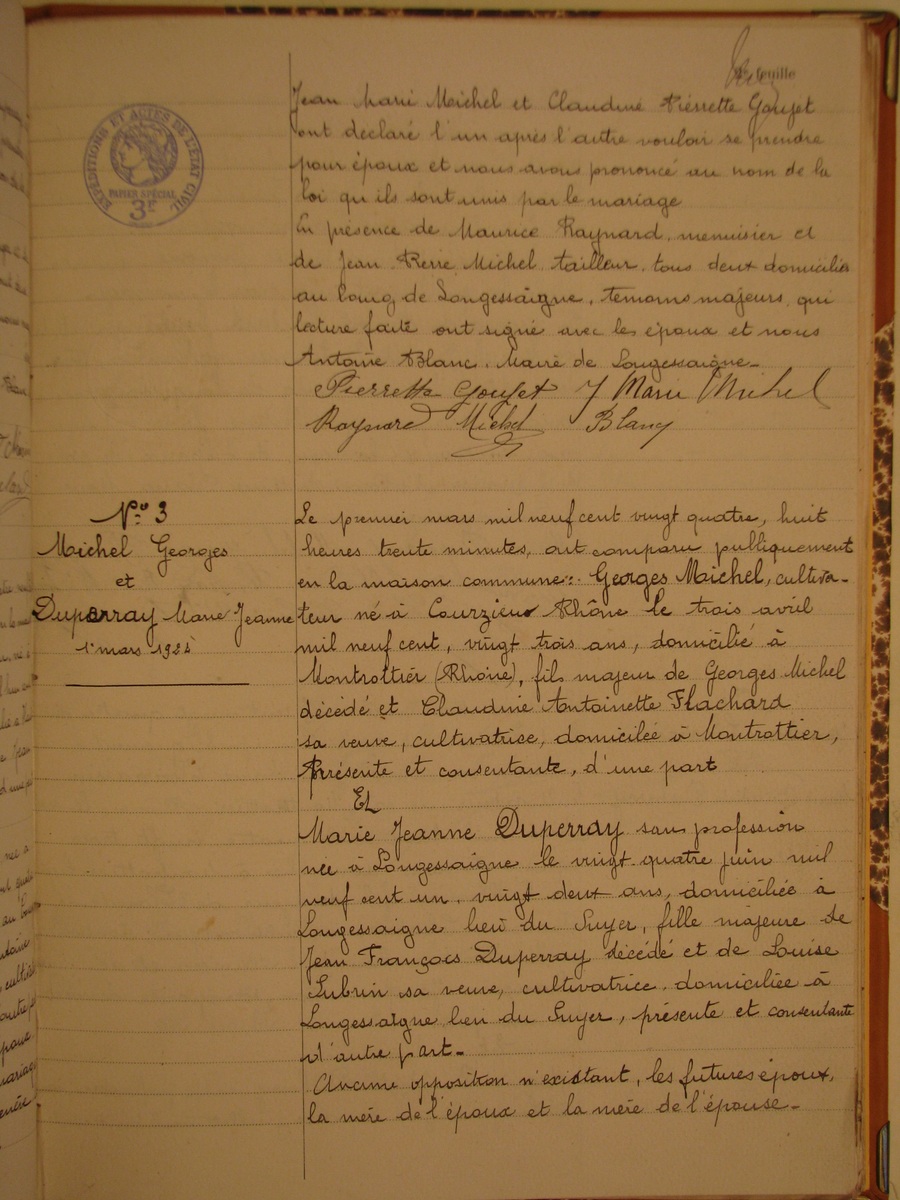 feuille
EXPEDITIONS ET ACTES DE L'ETAT CIVIL
PAPIER SPÉCIAL
3F
Jean Marie Michel et Claudine Pierrette Goujet
ont déclaré l'un après l'autre vouloir se prendre
pour époux et nous avons prononcé au nom de la
loi qu'ils sont unis par le mariage
En présence de Maurice Raynard, menuisier et
de Jean Pierre Michel tailleur, tous deux domiciliés
au bourg de Longessaigne, témoins majeurs, qui
lecture faite ont signé avec les époux et nous
Antoine Blanc, Maire de Longessaigne_
Pierrette Goujet J Marie Michel
Raynard Michel Blanc
N° 3
Michel Georges
et
Duperray Marie Jeanne
1er mars 1924
Le premier mars mil neuf cent vingt quatre, huit
heures trente minutes, ont comparu publiquement
en la maison commune: Georges Michel, cultiva-
teur né à Courzieu Rhône le trois avril
mil neuf cent, vingt trois ans, domicilié à
Montrottier (Rhône), fils majeur de Georges Michel
décédé et Claudine Antoinette Flachard
sa veuve, cultivatrice, domiciliée à Montrottier,
présente et consentante, d'une part
Et
Marie Jeanne Duperray sans profession
née à Longessaigne le vingt quatre juin mil
neuf cent un, vingt deux ans, domiciliée à
Longessaigne lieu du Suyer, fille majeure de
Jean François Duperray décédé et de Louise
Subrin sa veuve, cultivatrice, domiciliée à
Longessaigne lieu du Suyer, présente et consentante
d'autre part_
Aucune opposition n'existant, les futures époux,
la mère de l'époux et la mère de l'épouse_